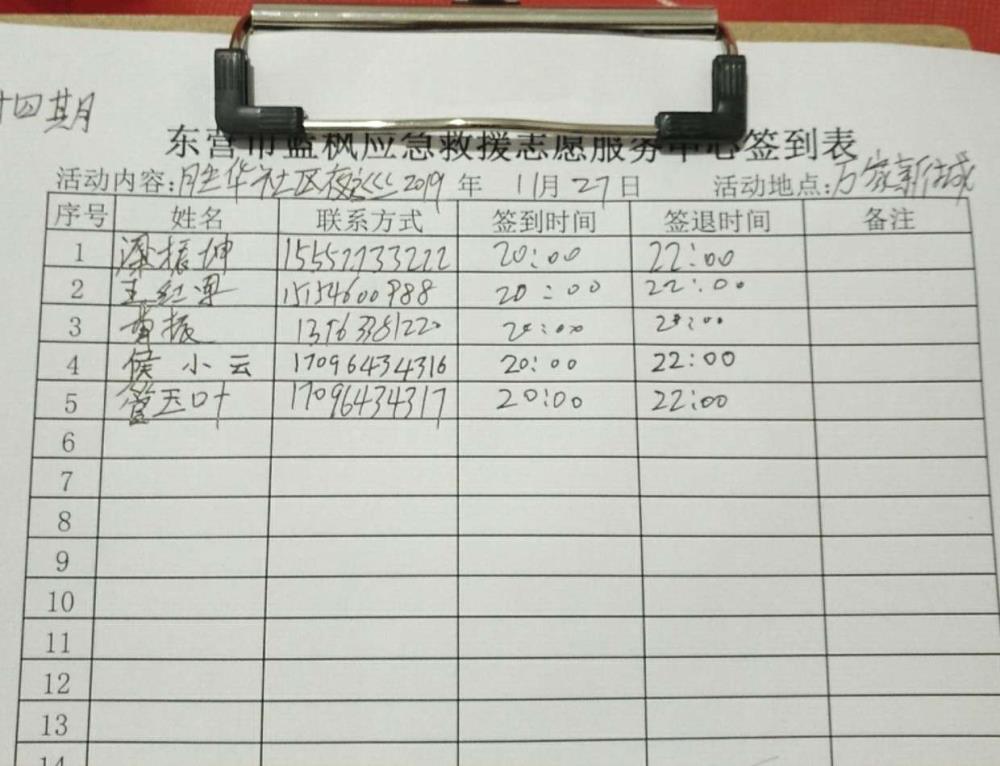 十四期
东营市蓝枫应急救援志愿服务中心签到表
活动内容:胜华社区夜巡 2019 年 11月27日 活动地点:万家新城
序号 姓名 联系方式 签到时间 签退时间 备注
1 梁振坤 15557733222 20:00 22:00
2 王红军 15154600988 20:00 22:00
3 振 20:00
4 侯小云 17096434316 20:00 22:00
5 玉叶 17096434317 20:00 22:00
6
7
8
9
10
11
12
13
14